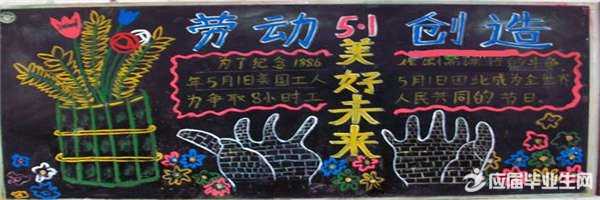 劳动 5·1 创造
美好未来
为了纪念1886
年5月1日美国工人
力争取8小时工
的斗争
5月1日也就成为全世界
人民共同的节日。
应届毕业生网